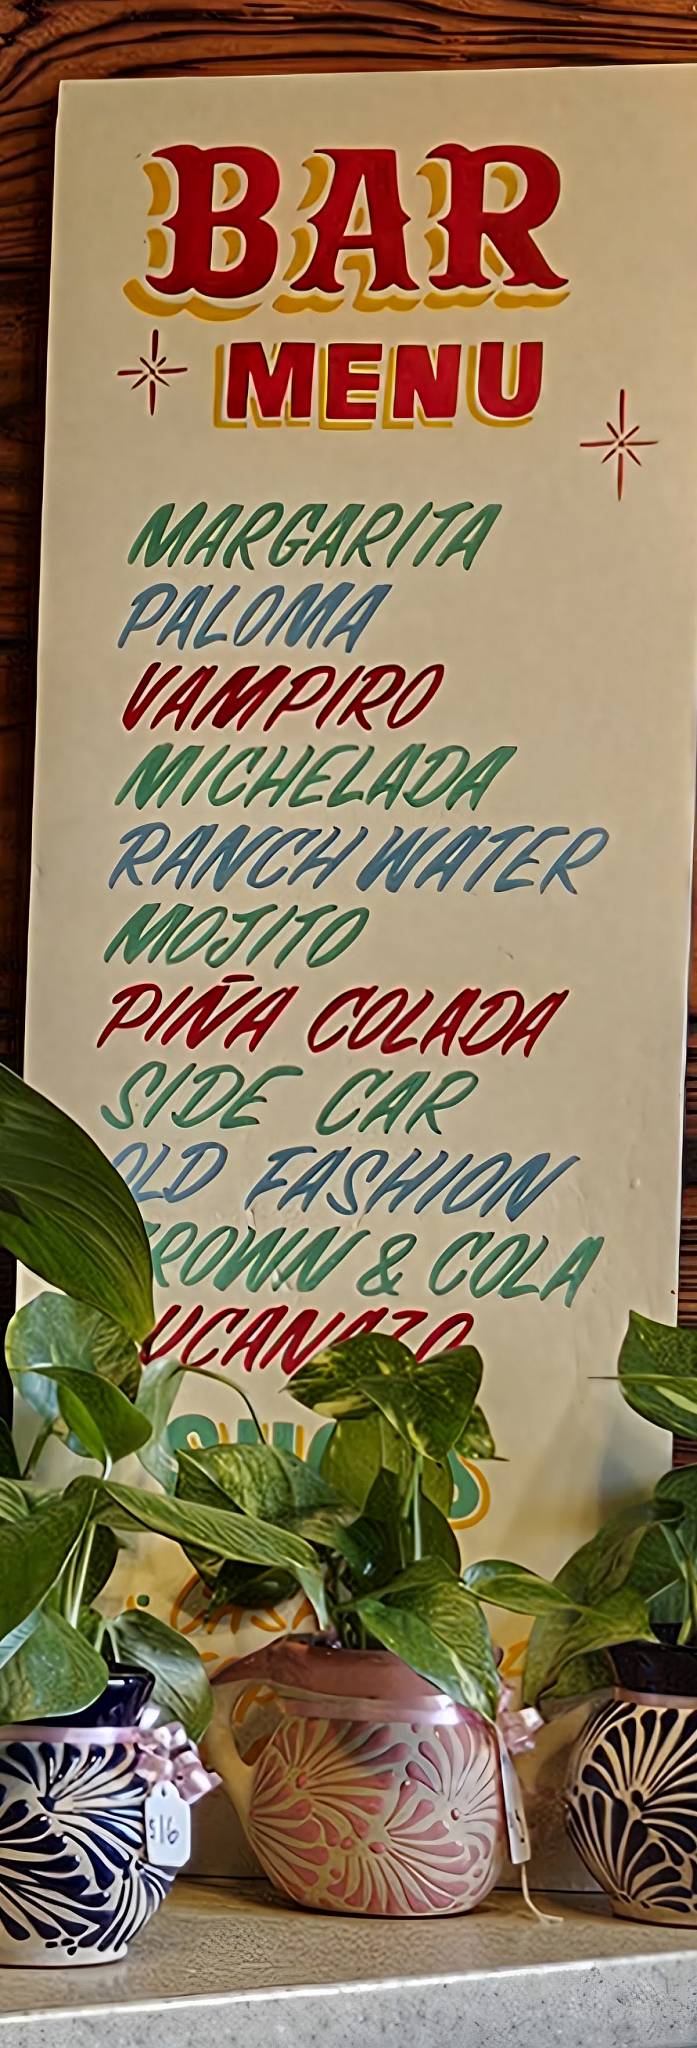 BAR
MENU
MARGARITA
PALOMA
VAMPIRO
MICHELADA
RANCH WATER
MOJITO
PIÑA COLADA
SIDE CAR
OLD FASHION
& COLA
$16